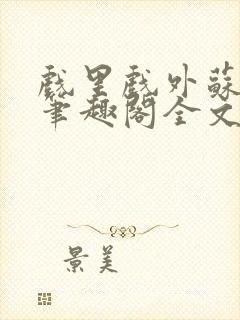 戲里戲外蘇
筆趣閣全文
景美